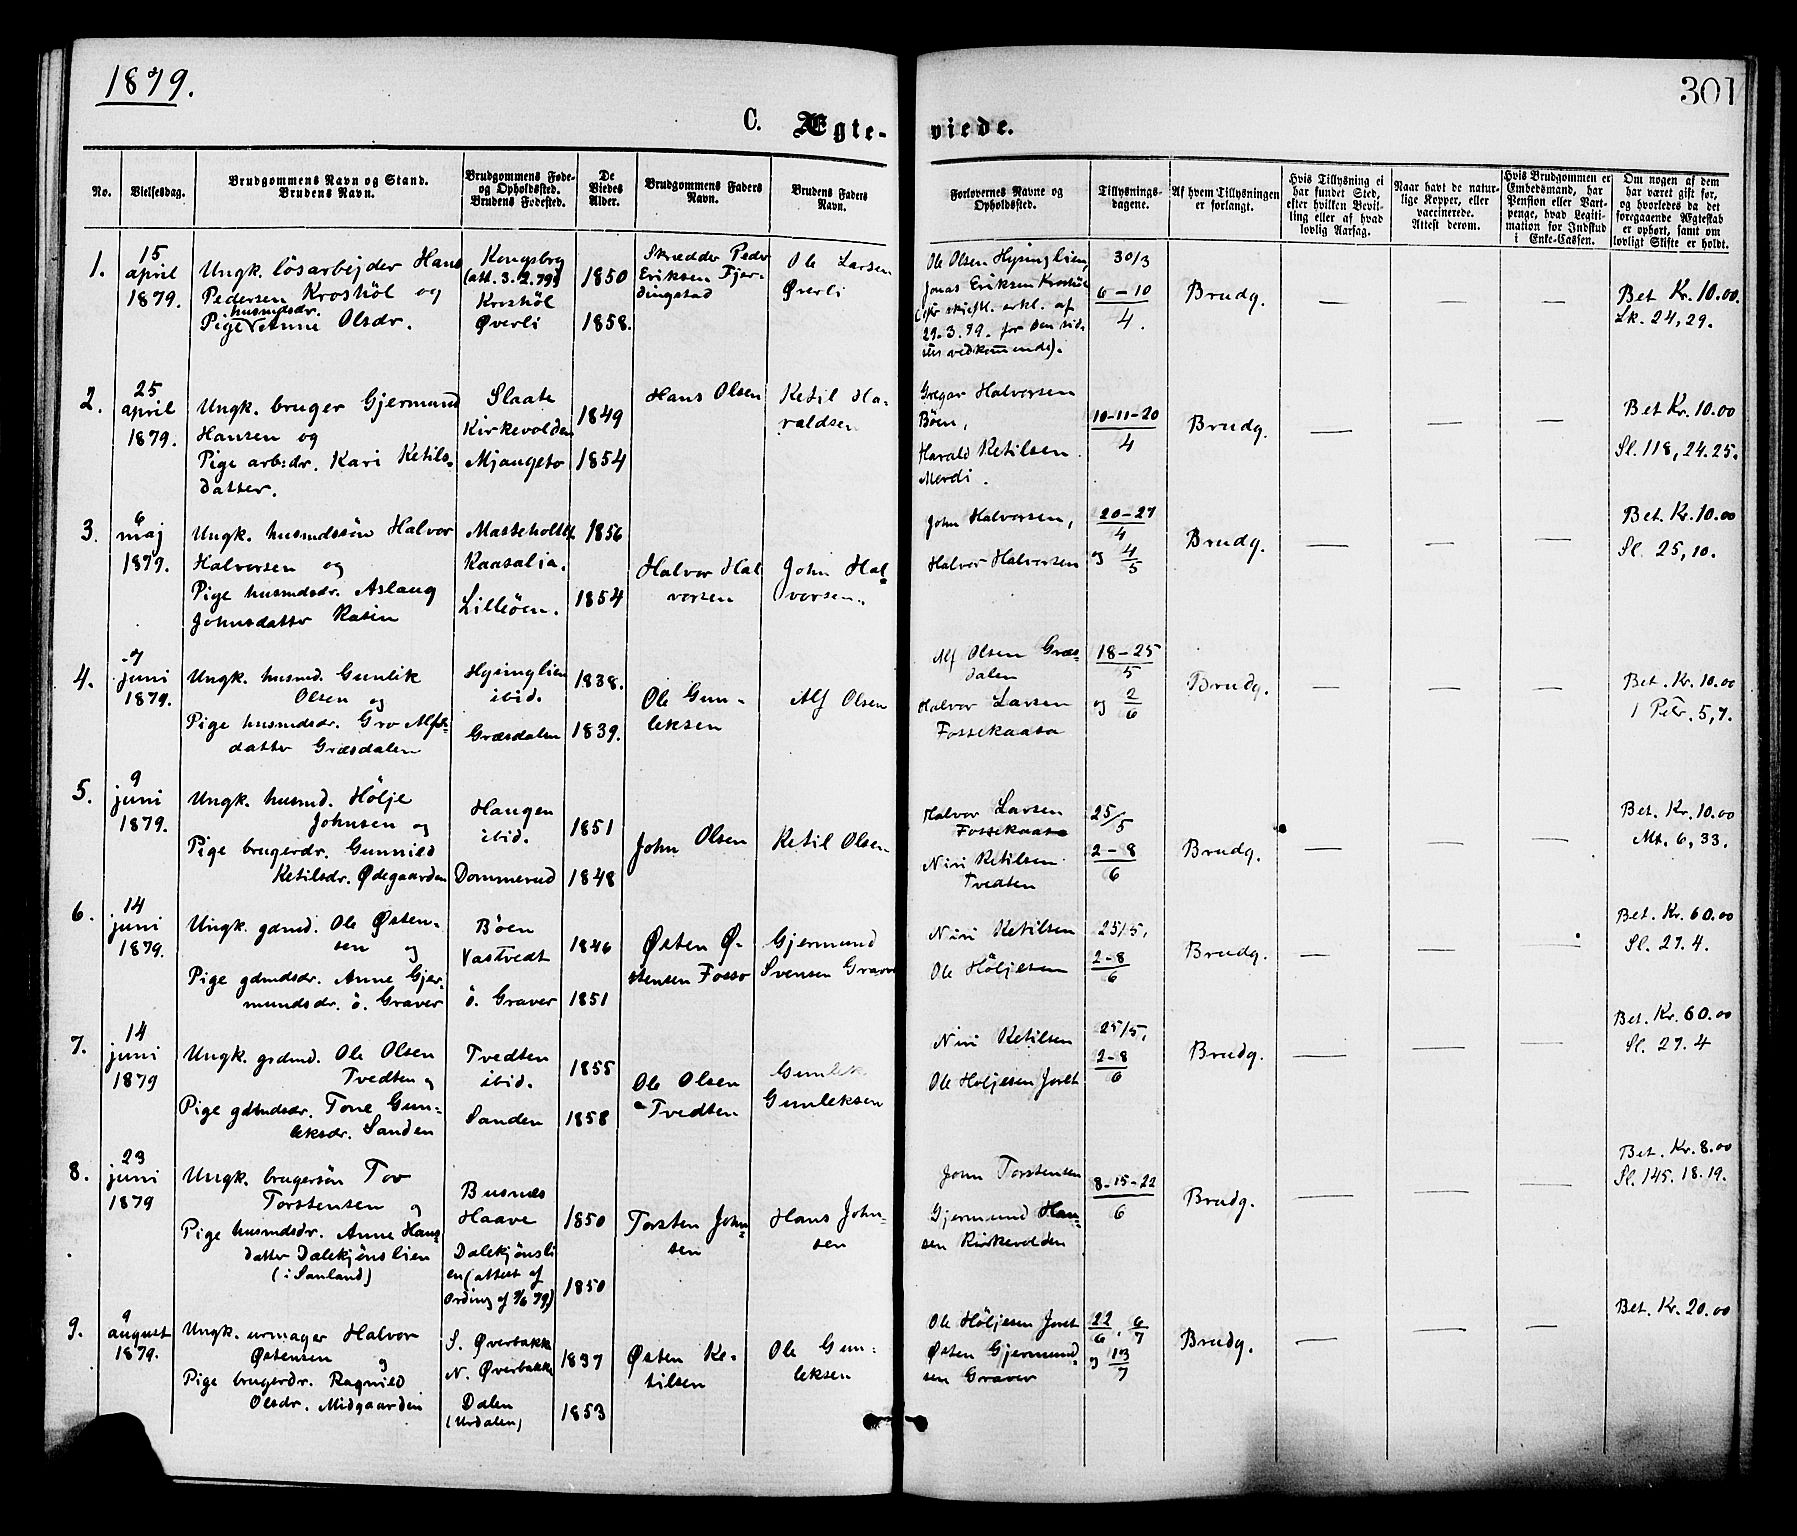 1879.
301
C. Ægte- viede.
No.
Vielsesdag.
Brudgommens Navn og Stand.
Brudens Navn.
Brudgommens Føde-
og Opholdssted.
Brudens Fødested.
De
Viedes
Alder.
Brudgommens Faders
Navn.
Brudens Faders
Navn.
Forlovernes Navne og
Opholdssted.
Tillysnings-
dagene.
Af hvem Tillysningen
er forlangt.
Hvis Tillysning ei
har fundet Sted,
efter hvilken Bevil-
ling eller af hvad
lovlig Aarsag.
Naar havt de natur-
lige Kopper, eller
vaccinerede.
Attest derom.
Hvis Brudgommen er
Embedsmand, har
Pension eller Vart-
penge, hvad Legiti-
mation for Indskud
i Enke-Cassen.
Om nogen af dem
har været gift før,
og hvorledes da det
foregaaende Ægteskab
er ophørt, samt om
lovligt Skifte er holdt.
1.
15
april
1879.
Ungk. løsarbejder Hans
Pedersen Kroshöl og
husmdsdr.
Pige Anne Olsdr.
Kongsbrg
(att. 3.2.79)
Kroshöl
Øverli
1850
1858.
Skrædder Peder
Eriksen Fjer-
dingstad
Ole Larsen
Øverli
Ole Olsen Hysinglien,
Jonas Eriksen Kroshöl
(efr skriftl. erkl. af
29.3.79. for den sid-
stes vedkommende).
30/3
6-10
4.
Brudg.
—
—
—
Bet Kr. 10.00.
Lk. 24, 29.
2.
25
april
1879.
Ungk. bruger Gjermund
Hansen og
Pige arb:dr. Kari Ketils-
datter.
Slaate
Kirkevolden
Mjaugeto
1849
1854
Hans Olsen
Ketil Ha-
raldsen
Gregar Halvorsen
Bøen,
Harald Ketilsen
Merdi.
10-11-20
4
Brudg.
—
—
—
Bet Kr. 10.00
Sl. 118, 24.25.
3.
6
maj
1879.
Ungk. husmdssön Halvor
Halvorsen og
Pige husmdsdr. Aslaug
Johnsdatter Rasin
Masteholtet
Kaasalia.
Lilleöen.
1856
1854
Halvor Hal
vorsen
John Hal-
vorsen.
John Halvorsen,
Halvor Halvorsen
20-27
4
og 4
5
Brudg.
—
—
—
Bet. Kr. 10.00
Sl. 25, 10.
4.
7
juni
1879.
Ungk. husmd. Gunlik
Olsen og
Pige husmdsdr. Gro Alfs-
datter Græsdalen
Hysinglien
ibid.
Græsdalen
1838.
1839.
Ole Gun-
leksen
Alf Olsen
Alf Olsen Græs-
dalen
Halvor Larsen
Fossekaasa
18-25
5
og 2
6
Brudg.
—
—
—
Bet. Kr. 10.00
1 Petr. 5, 7.
5.
9
juni
1879.
Ungk. husmd. Hölje
Johnsen og
Pige brugerdr. Gunnild
Ketilsdr. Ødegaarden
Haugen
ibid.
Dommerud
1851
1848
John Olsen
Ketil Olsen
Halvor Larsen
Fossekaasa
Niri Ketilsen
Tvedten
25/5
2-8
6
Brudg.
—
—
—
Bet. Kr. 10.00
Mt. 6, 33.
6.
14
juni
1879.
Ungk. gdmd. Ole Østen-
sen og
Pige gdmdsdr. Anne Gjer-
mundsdr. ö. Graver
Böen
Vastvedt
ö. Graver
1846
1851
Østen Ø-
stensen Fosso
Gjermund
Svensen Graver
Niri Ketilsen
Ole Höljesen
25/5,
2-8
6
Brudg.
—
—
—
Bet. Kr. 60.00
Sl. 27. 4.
7.
14
juni
1879
Ungk. grdmd. Ole Olsen
Tvedten og
Pige gdmdsdr. Tone Gun-
leksdr. Sanden
Tvedten
ibid.
Sanden
1855
1858
Ole Olsen
Tvedten
Gunlek
Gunleksen
Niri Ketilsen
Ole Höljesen Joret
25/5,
2-8
6
Brudg.
—
—
—
Bet. Kr. 60.00
Sl. 27. 4
8.
23
juni
1879
Ungk. brugersön Tov
Torstensen og
Pige husmdsdr. Anne Hans
datter Dalekjönslien
(i Sauland)
Busnes
Haave
Dalekjönsli
en (attest af
Ording af 9/6 79)
1850
1850
Torsten John-
sen
Hans John-
sen
John Torstensen
Gjermund Han-
sen Kirkevolden
8-15-22
6
Brudg.
—
—
—
Bet. Kr. 8.00
Sl. 145. 18. 19.
9.
9
august
1879.
Ungk. urmager Halvor
Østensen og
Pige brugerdr. Ragnild
Olsdr. Midgaarden
S. Øverbakka
N. Øverbakka
Dalen
(Urdalen)
1837
1853
Østen Ke-
tilsen
Ole Gun-
leksen
Ole Höljesen Joret
Østen Gjermund-
sen Graver
22 6
6, 7
og 13
7
Brudg.
—
—
—
Bet. Kr. 20.00